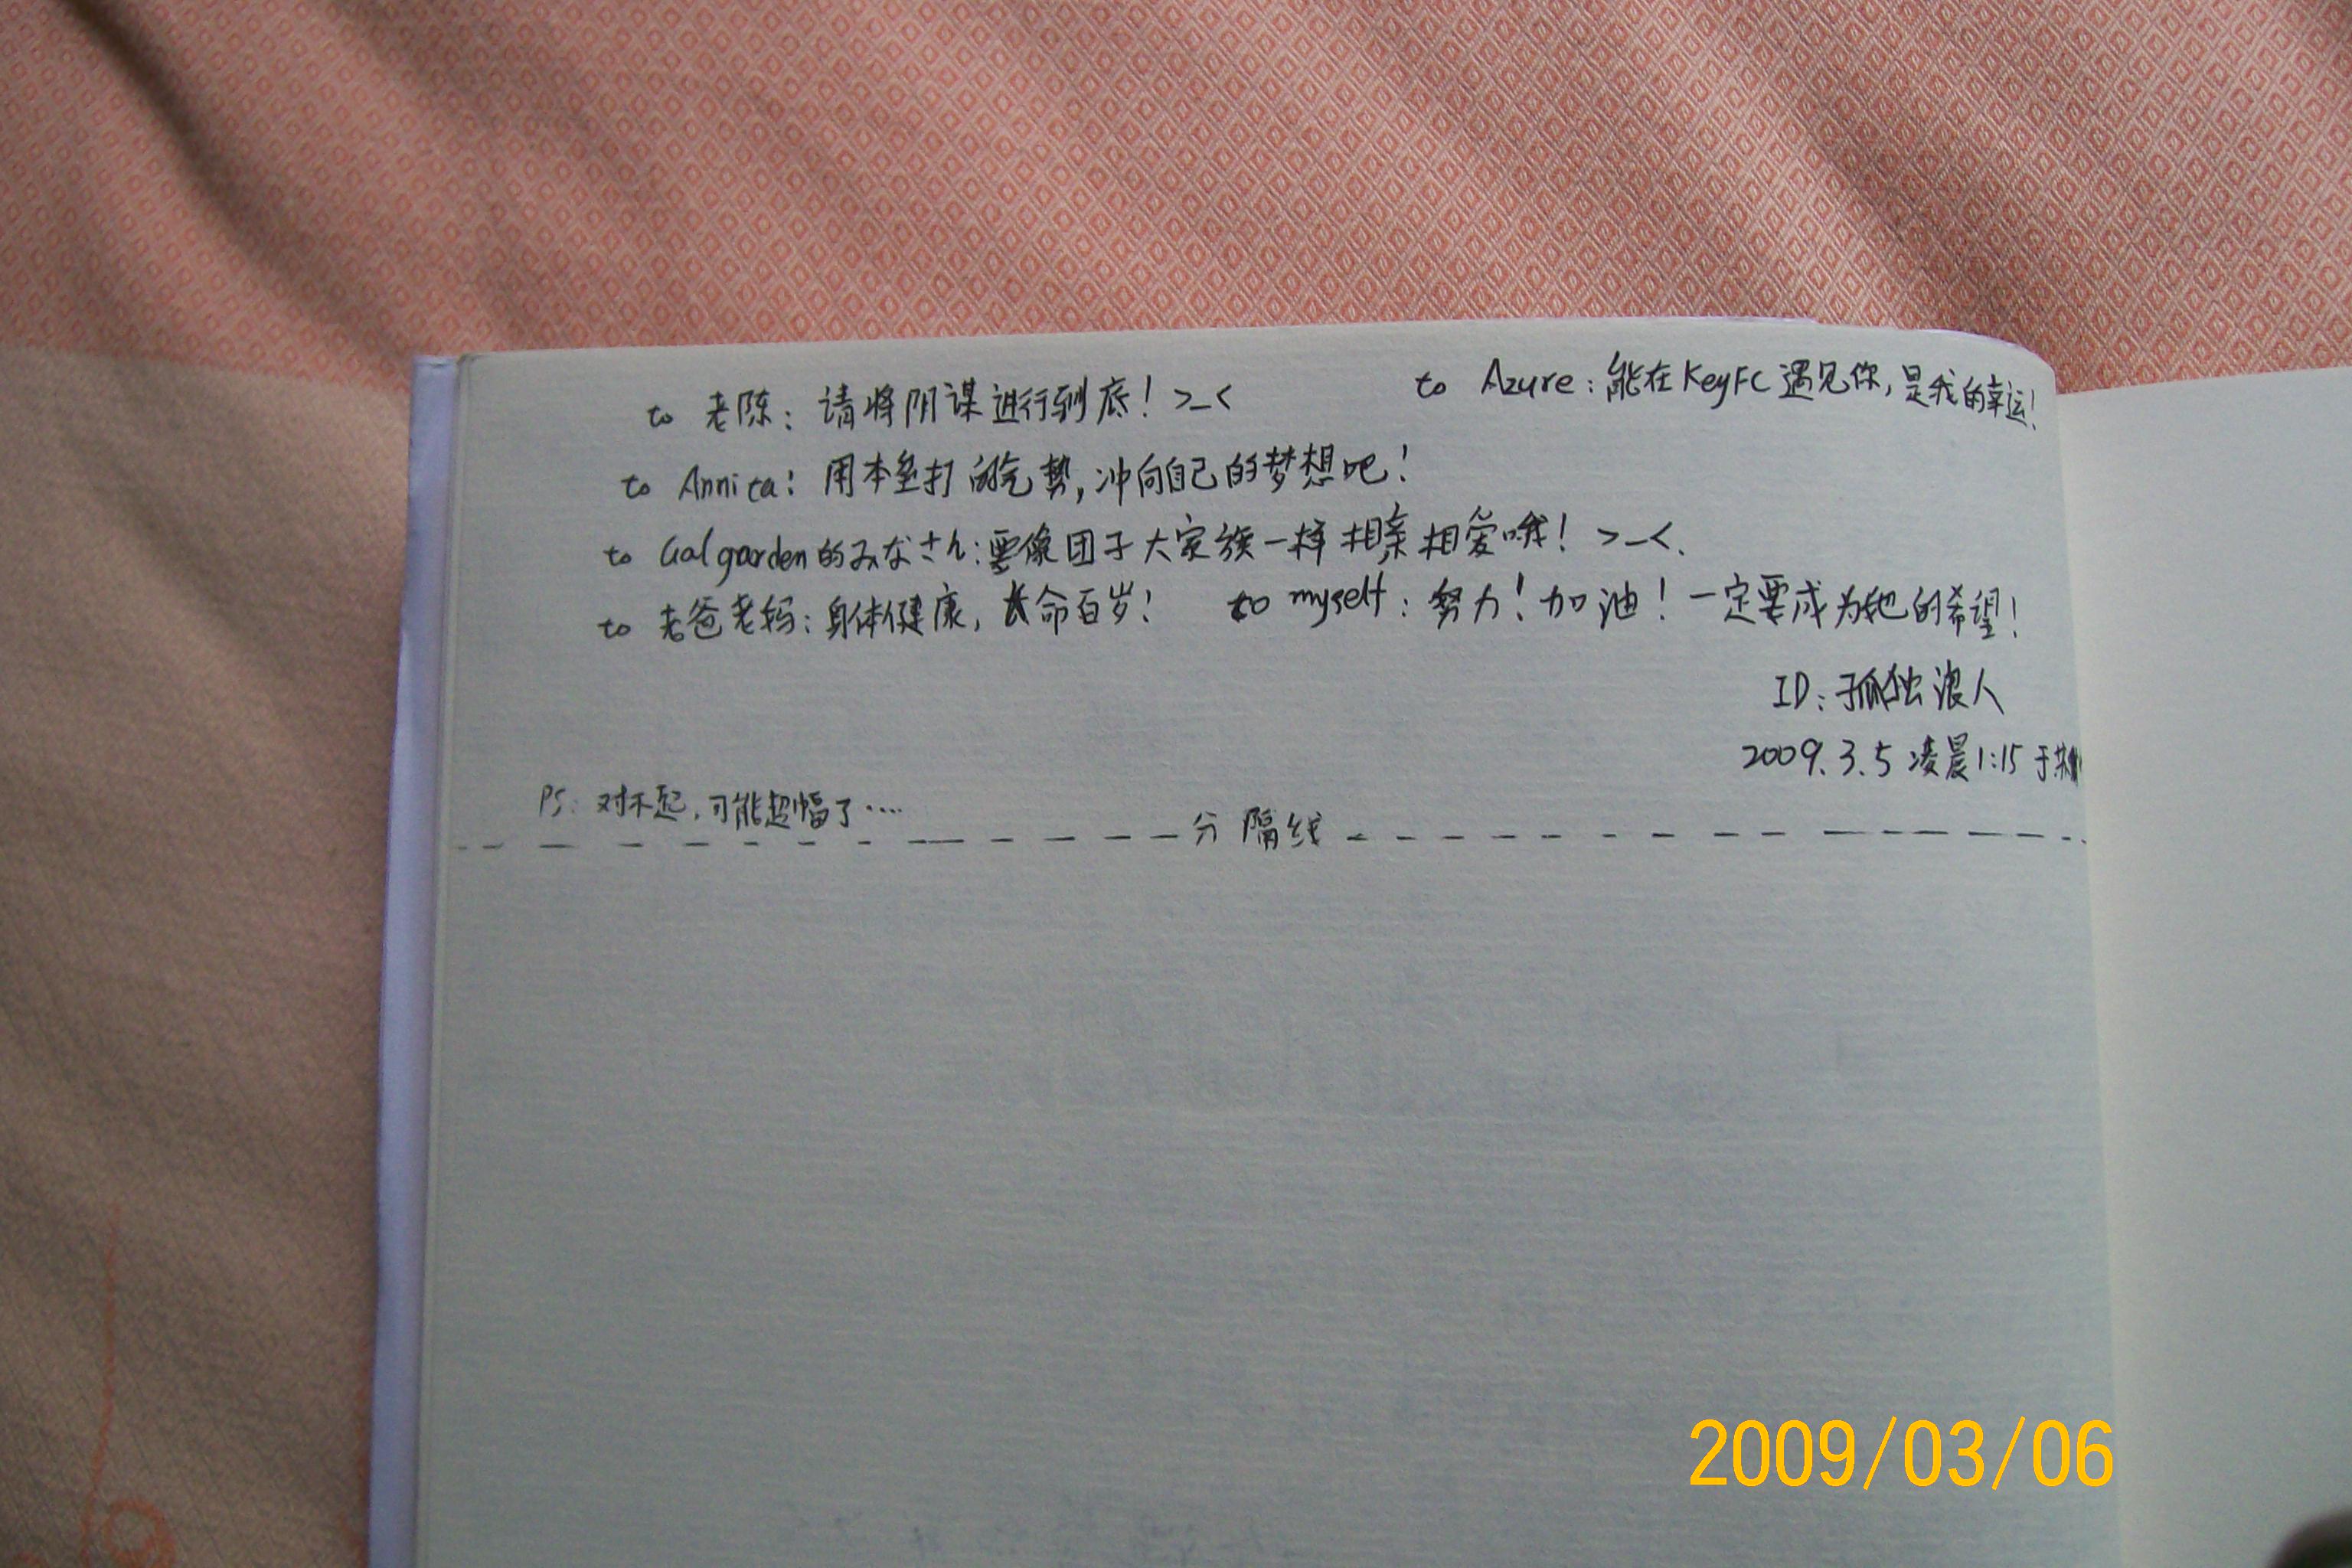 to 老陈：请将阴谋进行到底！>_< to Azure：能在KeyFC遇见你，是我的幸运！
to Annita：用本垒打的气势，冲向自己的梦想吧！
to Galgarden的みなさん：要像团子大家族一样相亲相爱哦！>_<.
to 老爸老妈：身体健康，长命百岁！ to myself：努力！加油！一定要成为她的希望！
ID：孤独浪人
2009.3.5 凌晨1:15 于
PS：对不起，可能超幅了····
分隔线
2009/03/06